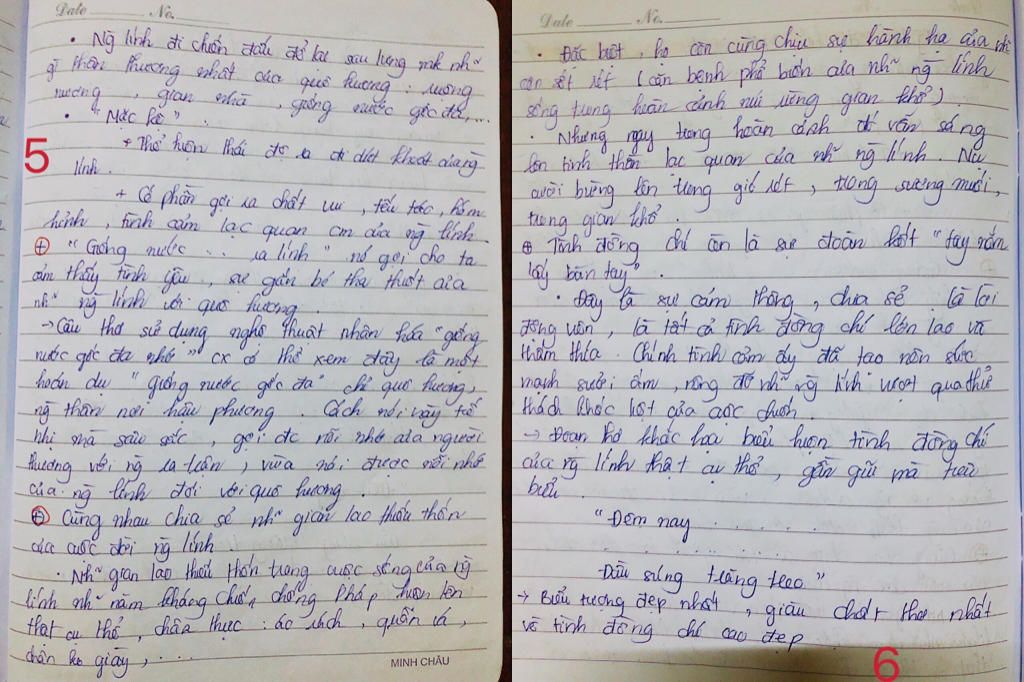 Date No.
• Ng lính đi chiến đấu để lại sau lưng mk nh~
gì thân thương nhất của quê hương : ruộng
nương, gian nhà, giếng nước gốc đa,...
• "Mặc kệ".
5
+ Thể hiện thái độ ra đi dứt khoát của ng
lính.
+ Có phần gợi ra chất vui, tếu táo, hóm
hỉnh, tình cảm lạc quan cm của ng lính.
+ "Giếng nước ... ra lính" nó gợi cho ta
cảm thấy tình yêu, sự gắn bó tha thiết của
nh~ ng lính với quê hương.
→ Câu thơ sử dụng nghệ thuật nhân hóa "giếng
nước gốc đa nhớ" cx có thể xem đây là một
hoán dụ "giếng nước gốc đa" chỉ quê hương,
ng thân nơi hậu phương. Cách nói vậy tế
nhị mà sâu sắc, gợi đc nỗi nhớ của người
thương với ng ra trận, vừa nói được nỗi nhớ
của ng lính đối với quê hương.
+ Cùng nhau chia sẻ nh~ gian lao thiếu thốn
của cuộc đời ng lính.
• Nh~ gian lao thiếu thốn trong cuộc sống của ng
lính nh~ năm kháng chiến chống Pháp hiện lên
thật cụ thể, chân thực : áo rách, quần vá,
chân ko giày, ...
MINH CHÂU
Date No.
• Đặc biệt, họ còn cùng chịu sự hành hạ của nh~
cơn sốt rét (căn bệnh phổ biến của nh~ ng lính
sống trong hoàn cảnh núi rừng gian khổ).
• Nhưng ngay trong hoàn cảnh đó vẫn sáng
lên tinh thần lạc quan của nh~ ng lính. Nụ
cười bừng lên trong gió rét, trong sương muối,
trong gian khổ.
+ Tình đồng chí còn là sự đoàn kết "tay nắm
lấy bàn tay".
• Đây là sự cảm thông, chia sẻ là lời
động viên, là tất cả tình đồng chí lớn lao và
thấm thía. Chính tình cảm ấy đã tạo nên sức
mạnh sưởi ấm, nâng đỡ nh~ ng lính vượt qua thử
thách khốc liệt của cuộc chiến.
→ Đoạn thơ khắc họa biểu hiện tình đồng chí
của ng lính thật cụ thể, gần gũi mà tiêu
biểu.
"Đêm nay .......
........
Đầu súng trăng treo"
→ Biểu tượng đẹp nhất, giàu chất thơ nhất
về tình đồng chí cao đẹp
6